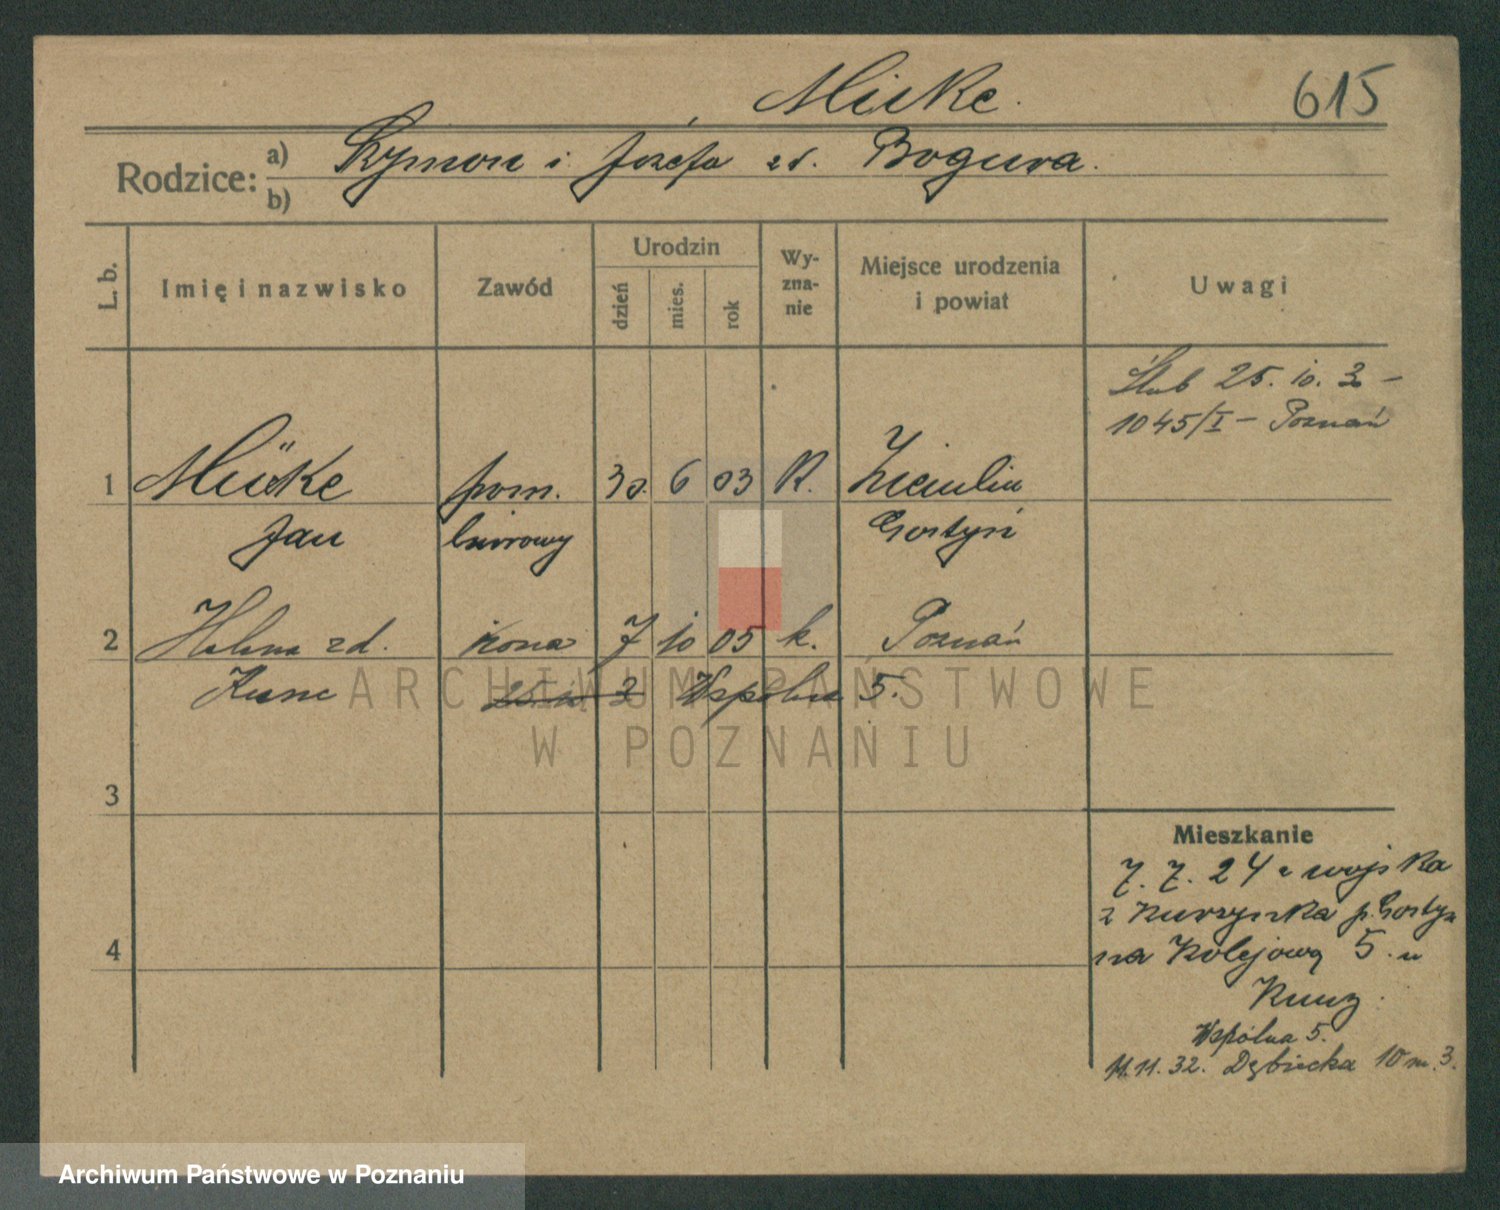 Mücke.
615
Rodzice: a) Szymon i Józefa zd. Bogu
b)
L. b.
Imię i nazwisko
Zawód
Urodzin
dzień
mies.
rok
Wy-
zna-
nie
Miejsce urodzenia
i powiat
Uwagi
Ślub 25. 10. 30 –
1045/I – Poznań
1 Mücke pom. 30. 6 03 K. Ziemlin
Jan biurowy Gostyń
2 Helena zd. żona 7 10 05 k. Poznań
Wspólna 5.
3
4
Mieszkanie
7. 7. 24 z wojska
z p. Gostyń
na Kolejową 5. u
Kunz.
Wspólna 5.
11.11.32. Dębiecka 10 m. 3.
ARCHIWUM PAŃSTWOWE
W POZNANIU
Archiwum Państwowe w Poznaniu